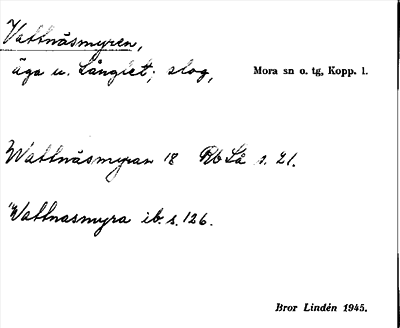 Vattnäsmyren,
äga u. Långlet; slog, Mora sn o. tg, Kopp. l.
Wattnäsmyran 18 Rb Lå s. 21.
"Wattnasmyra ib. s. 126.
Bror Lindén 1945.